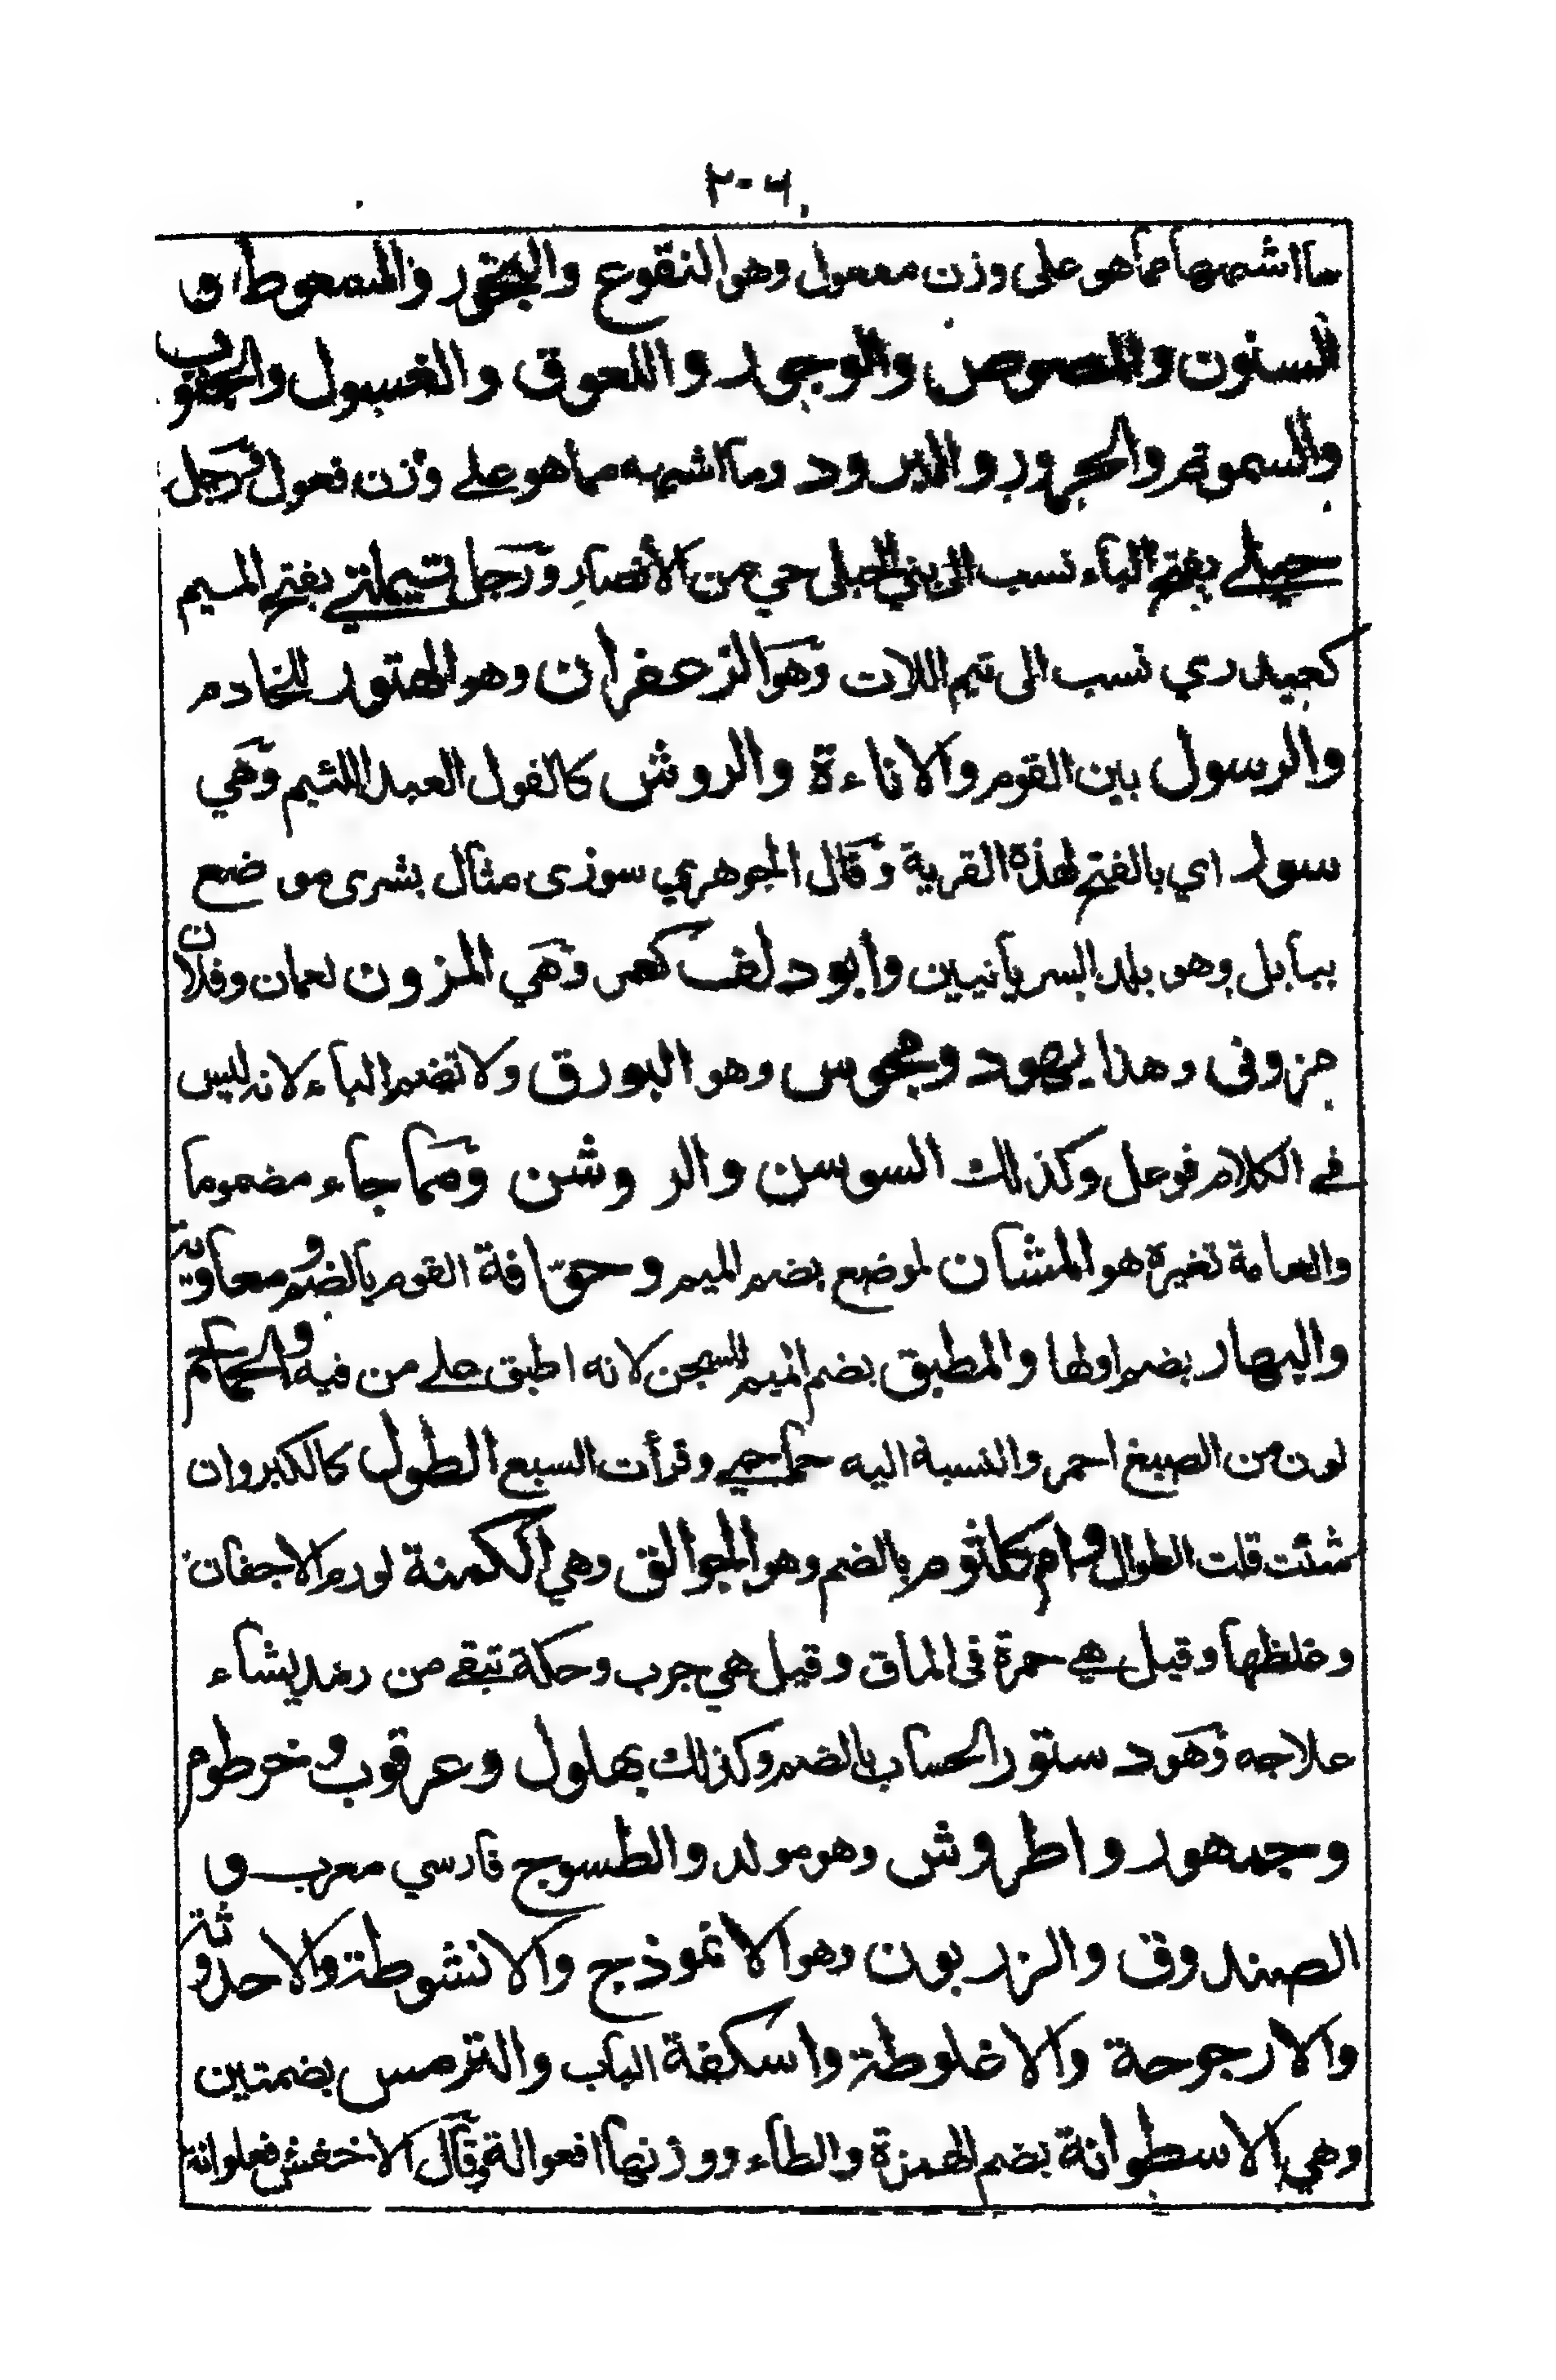 ٢٠٦
ما اشبهها مما هو على وزن مفعول وهو النقوع والبخور والسعوط و
السنون والمصوص والوجور واللعوق والغسول والحقوب
والسموم والحرور والبرود وما اشبهه مما هو على وزن فعول ورجل
حبلي بفتح الباء نسب الى بني الحبلى حي من الأنصار ورجل تيملتي بفتح الميم
كعبدري نسب الى تيم اللات وهو الزعفران وهو الهتور للخادم
والرسول بين القوم والاناءة والروش كالفول العبد اللئيم وهي
سورا اي بالفتح لهذة القرية وقال الجوهري سوزى مثال بشرى موضع
ببابل وهو بلد السريانيين وابو دلف كعمر وهي المزون لعمان وفلان
مزوني وهذا يهود ومجوس وهو البورق ولا تضم الباء لانه ليس
في الكلام فوعل وكذلك السوسن والروشن ومما جاء مضموما
والعامة تغيره هو المشان لموضع بضم الميم وحوّافة القوم بالضم ومعاوية
والبهار بضم اولها والمطبق بضم الميم للسجن لانه اطبق على من فيه والحماحم
لون من الصبغ احمر والنسبة اليه حماحمي وقرأت السبع الطول كالكبر وان
شئت قلت الطوال وام كلثوم بالضم وهو الجوالق وهي الكمنة لورم الاجفان
وغلظها وقيل هي حمرة في الماق وقيل هي جرب وحكة تبقى من رمد يساء
علاجه وهو دستور الحساب بالضم وكذلك بهلول وعرقوب وخرطوم
وجمهور واطروش وهو مولد والطسوج فارسي معرب و
الصندوق والزربون وهو الانموذج والانشوطة والاحدوثة
والارجوحة والاغلوطة واسكفة الباب والترمس بضمتين
وهي الاسطوانة بضم الهمزة والطاء ووزنها افعوالة وقال الاخفش فعلوانة